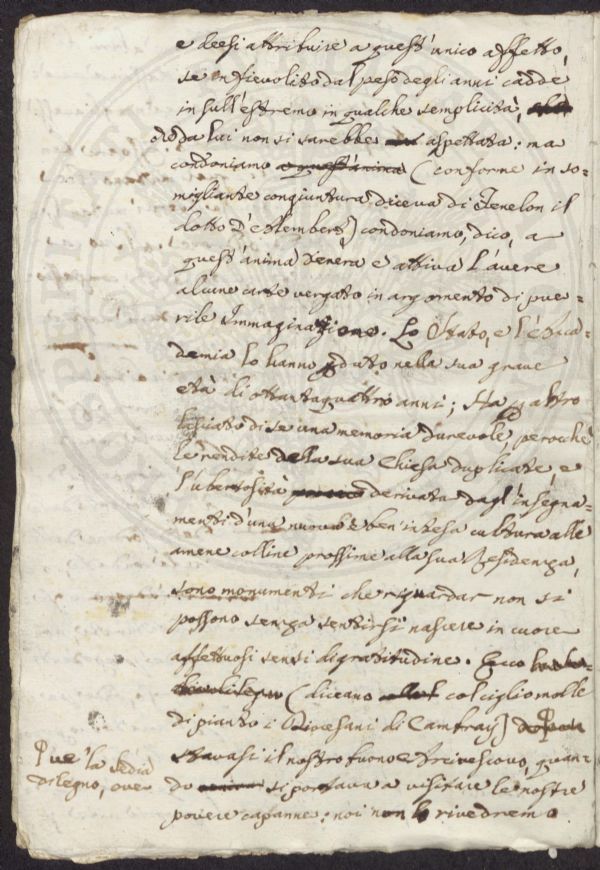 e deesi attribuire a quest'unico affetto,
se infievolito dal peso degli anni cadde
in sull'estremo in qualche semplicità,
da lui non si sarebbe aspettata: ma
condoniamo a quest'anima (conforme in so-
migliante congiuntura diceva di Fenelon il
dotto D'Alembert) condoniamo, dico, a
quest'anima tenera e attiva l'avere
alcune carte vergato in argomento di pue-
rile Immaginazione. Lo Stato, e l'Acca-
demia lo hanno pduto nella sua grave
età di ottantaquattro anni; Ha p altro
lasciato di se una memoria durevole, perochè
le rendite della sua Chiesa duplicate, e
l'ubertosità derivata dagl'insegna-
menti d'una nuova e ben'intesa cultura alle
amene colline prossime alla sua Residenza,
sono monumenti che riguardar non si
possono senza sentirsi nascere in cuore
affettuosi sensi di gratitudine. Ecco
(diceano col ciglio molle
di pianto i Diocesani di Cambray)
ve la sedia
di legno, ove
stavasi il nostro buono Arcivescovo, quan-
do si portava a visitare le nostre
povere capanne: noi non lo rivedremo